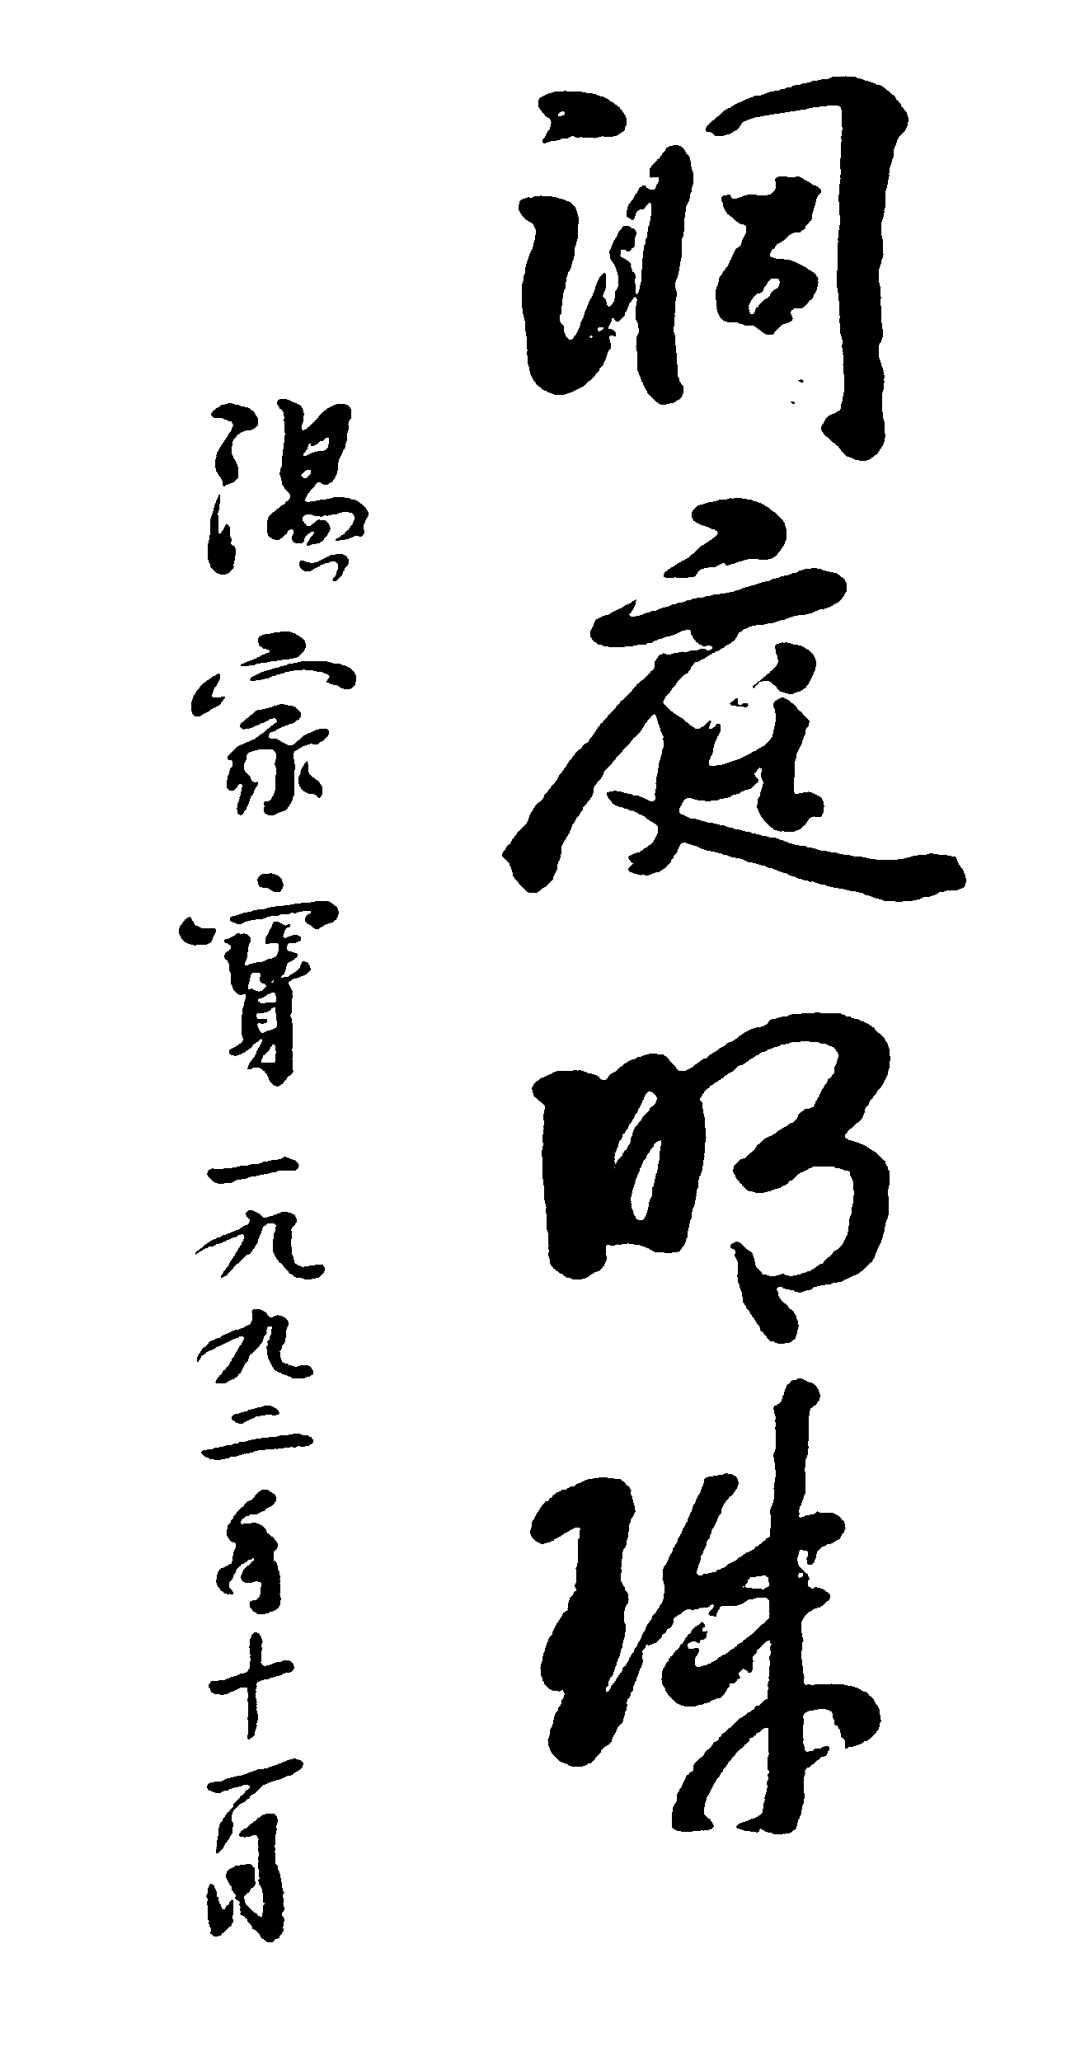 洞庭明珠
温家寶一九九二年十一月